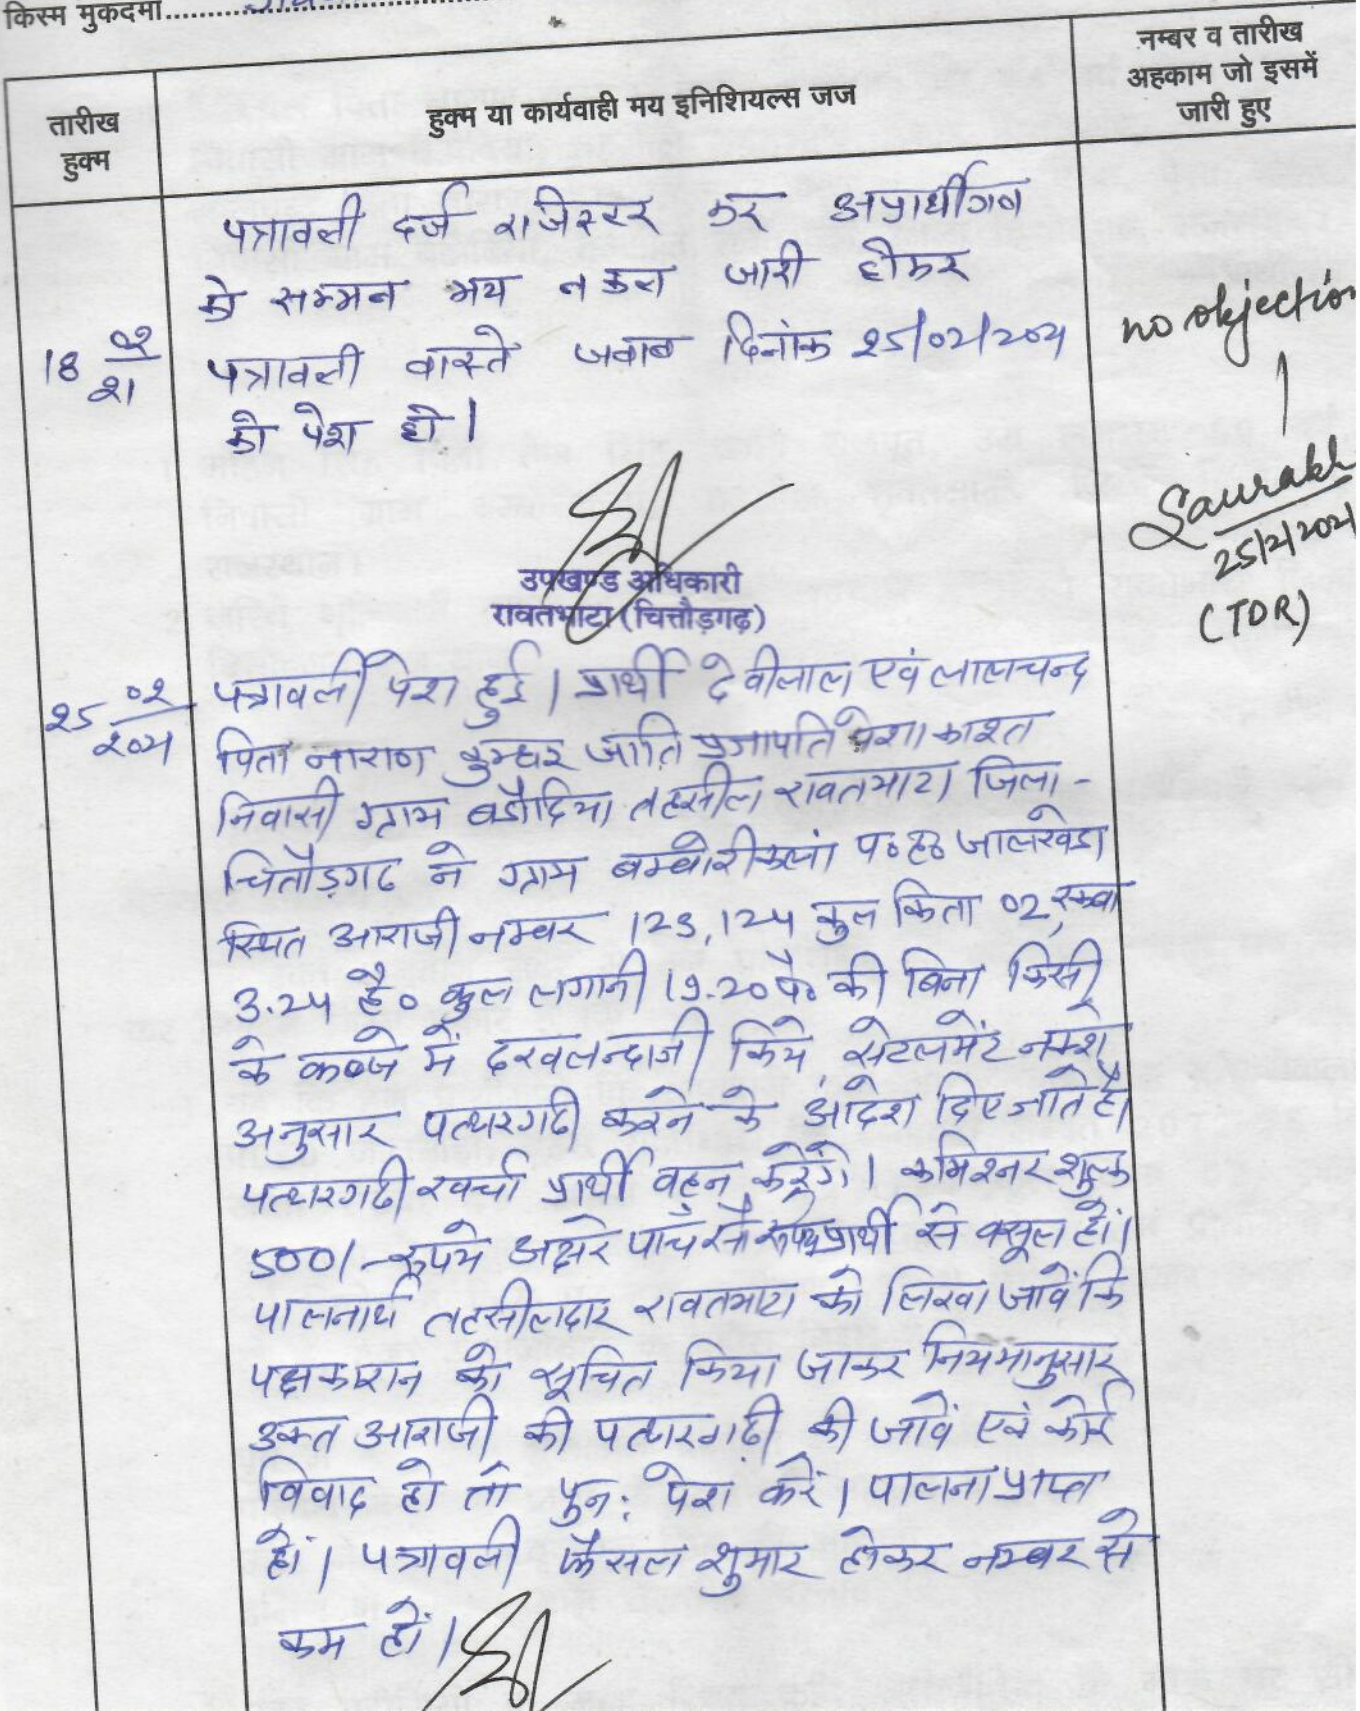 किस्म मुकदमा
तारीख
हुक्म
हुक्म या कार्यवाही मय इनिशियल्स जज
नम्बर व तारीख
अहकाम जो इसमें
जारी हुए
18 02/21
पत्रावली दर्ज रजिस्टर कर अप्रार्थीगण
को सम्मन मय नकल जारी होकर
पत्रावली वास्ते जवाब दिनांक 25/02/2021
को पेश हो।
no objection
Saurabh
25/2/2021
(TDR)
उपखण्ड अधिकारी
रावतभाटा (चित्तौड़गढ़)
25 02/2021
पत्रावली पेश हुई। प्रार्थी देवीलाल एवं लालचन्द
पिता नाराण कुम्हार जाति प्रजापति पेशा काश्त
निवासी ग्राम बडौदिया तहसील रावतभाटा जिला -
चितौड़गढ ने ग्राम बम्बोरीकलां प०ह० जालखेडा
स्थित आराजी नम्बर 123, 124 कुल किता 02, रकबा
3.24 है० कुल लगानी 19.20 पै० की बिना किसी
के कब्जे में दखलन्दाजी किये, सेटलमेंट नक्शे
अनुसार पत्थरगढी करने के आदेश दिए जाते है।
पत्थरगढी खर्चा प्रार्थी वहन करेंगे। कमिश्नर शुल्क
500/- रूपये अक्षरे पाँच सौ रूपये प्रार्थी से वसूल हों।
पालनार्थ तहसीलदार रावतभाटा को लिखा जावें कि
पक्षकारान को सूचित किया जाकर नियमानुसार
उक्त आराजी की पत्थरगढी की जावें एवं कोई
विवाद हो तो पुन: पेश करें। पालना प्राप्त
हों। पत्रावली फैसल शुमार होकर नम्बर से
कम हों।